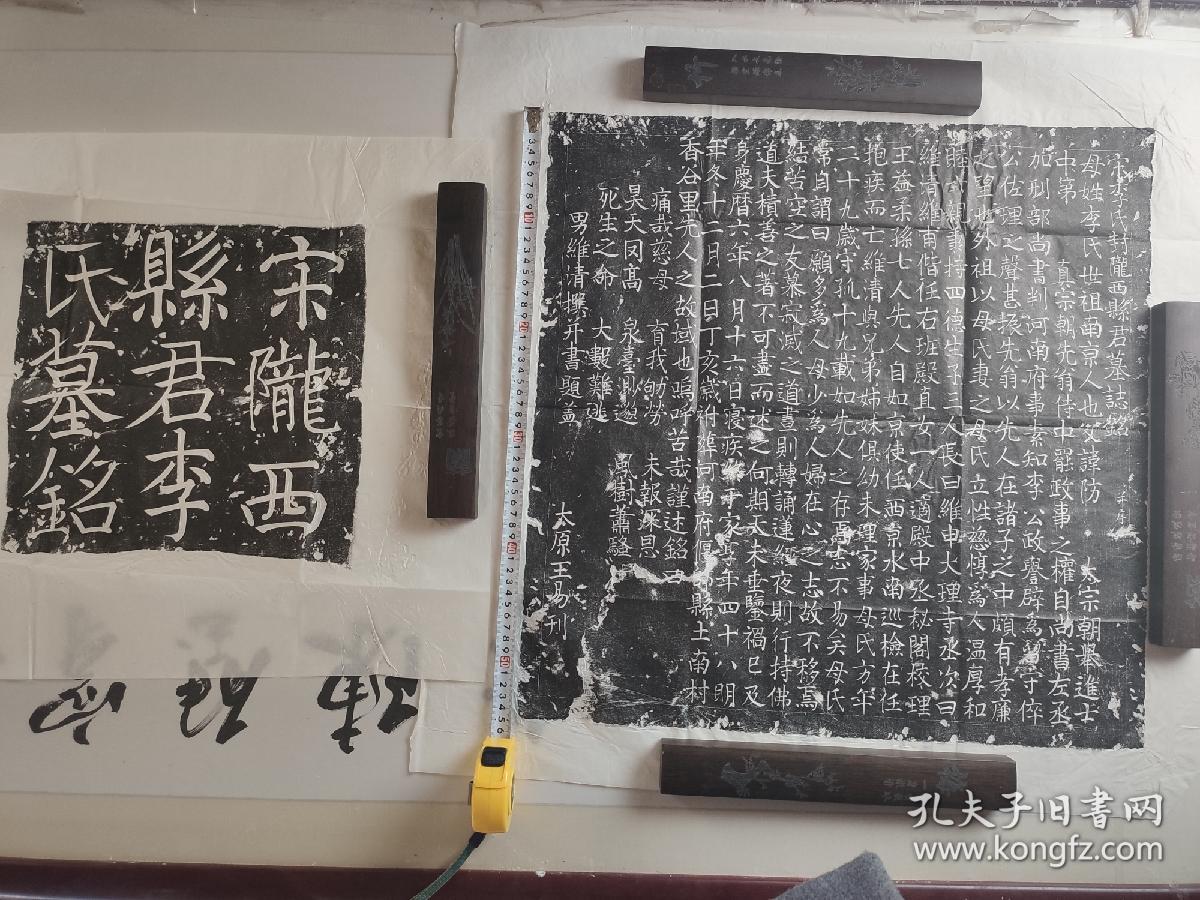 宋隴西
縣君李
氏墓銘
宋李氏封隴西縣君墓誌銘
母姓李氏世祖南京人也父諱防 太宗朝舉進士
中第 真宗朝先翁侍中罷政事之權自尚書左丞
加刑部尚書判河南府事素知李公政譽辟為 守倅
公佐理之聲甚振先翁以先人在諸子之中頗有孝廉
之望也外祖以母氏妻之母氏立性慈惧為人温厚和
睦六親事持四德生子三人長曰維申大理寺丞次曰
維清維甫偕任右班殿直女一人適殿中丞秘閣校理
王益柔孫七人先人自如京使任西京水南巡檢在任
抱疾而亡維清與兄弟姊妹俱幼未理家事母氏方年
二十九歲守孤十九載如先人之存焉志不易矣母氏
常自謂曰願多為人母少為人婦在心之志故不移焉
結苦空之友慕寂滅之道晝則轉誦蓮經夜則行持佛
道夫積善之著不可盡而述之何期天未垂鑒禍已及
身慶曆六年八月十六日寢疾 于家享年四十八明
年冬十二月二日丁亥歲祔葬河南府偃 縣土南村
香谷里先人之故域也嗚呼苦哉謹述銘曰
痛哉慈母 育我劬勞 未報深恩
昊天罔高 泉臺渺邈 風樹蕭騷
死生之命 大艱難逃
男維清撰并書題蓋
太原王易刊
孔夫子旧书网
www.kongfz.com